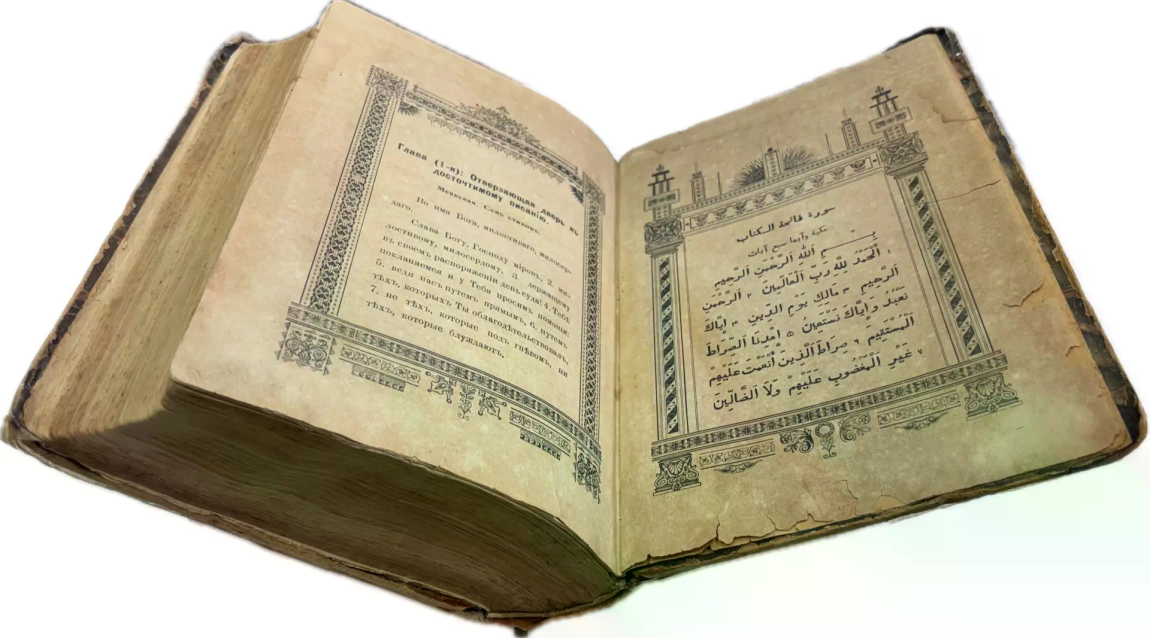 Глава (1-я): Отверзающая дверь къ
досточтимому писанію.
Меккская. Семь стиховъ.
Во имя Бога, милостиваго, милосер-
даго.
Слава Богу, Господу міровъ, 2. ми-
лостивому, милосердому, 3. держащему
въ своемъ распоряженіи день суда! 4. Тебѣ
покланяемся и у Тебя просимъ помощи:
5. веди насъ путемъ прямымъ, 6. путемъ
тѣхъ, которыхъ Ты облагодѣтельствовалъ,
7. не тѣхъ, которые подъ гнѣвомъ, ни
тѣхъ, которые блуждаютъ.
سورة فاتحة الكتاب
مكية وآيها سبع آيات
بِسْمِ اللهِ الرَّحْمٰنِ الرَّحِيمِ
١ اَلْحَمْدُ لِلّٰهِ رَبِّ الْعَالَمِينَ ٢ اَلرَّحْمٰنِ
الرَّحِيمِ ٣ مَالِكِ يَوْمِ الدِّينِ ٤ إِيَّاكَ
نَعْبُدُ وَإِيَّاكَ نَسْتَعِينُ ٥ اِهْدِنَا الصِّرَاطَ
الْمُسْتَقِيمَ ٦ صِرَاطَ الَّذِينَ أَنْعَمْتَ عَلَيْهِمْ
٧ غَيْرِ الْمَغْضُوبِ عَلَيْهِمْ وَلَا الضَّالِّينَ